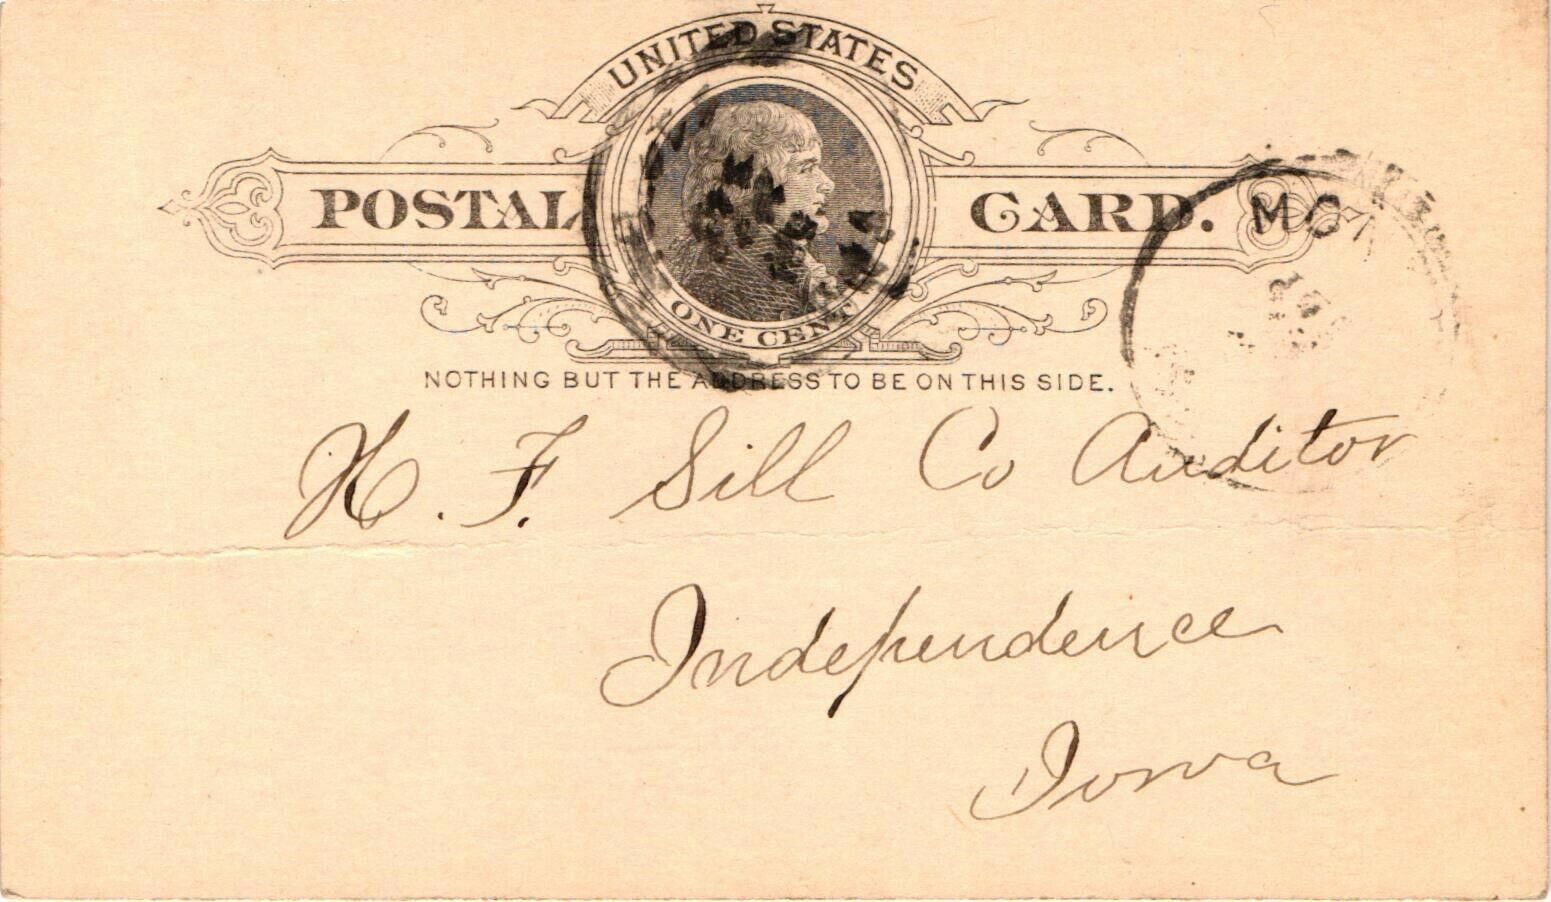 UNITED STATES
POSTAL CARD.
ONE CENT
NOTHING BUT THE ADDRESS TO BE ON THIS SIDE.
H. F. Sill Co Auditor
Independence
Iowa